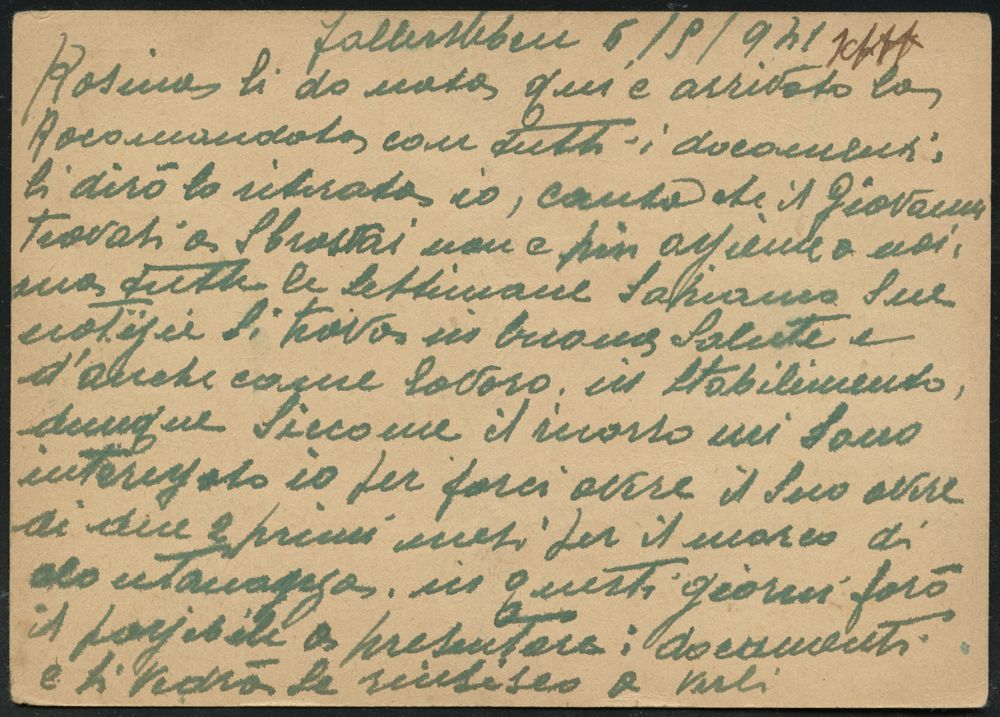 Fallersleben 6/9/941
Rosina ti do nota qui è arrivato la
Racomandata con tutti i documenti,
ti dirò lo ritirata io, che il Giovanni
Trovati a non è più assieme a noi,
ma tutte le settimane Sapiamo Sue
notizie Si trova in buona Salute e
d'anche come lavoro. in Stabilimento,
dunque Sicome il mi Sono
io per farci avere il Suo avere
di due 2 primi mesi per il marco di
lontananza. in questi giorni farò
il possibile a presentare i documenti
e si vedrà Se a